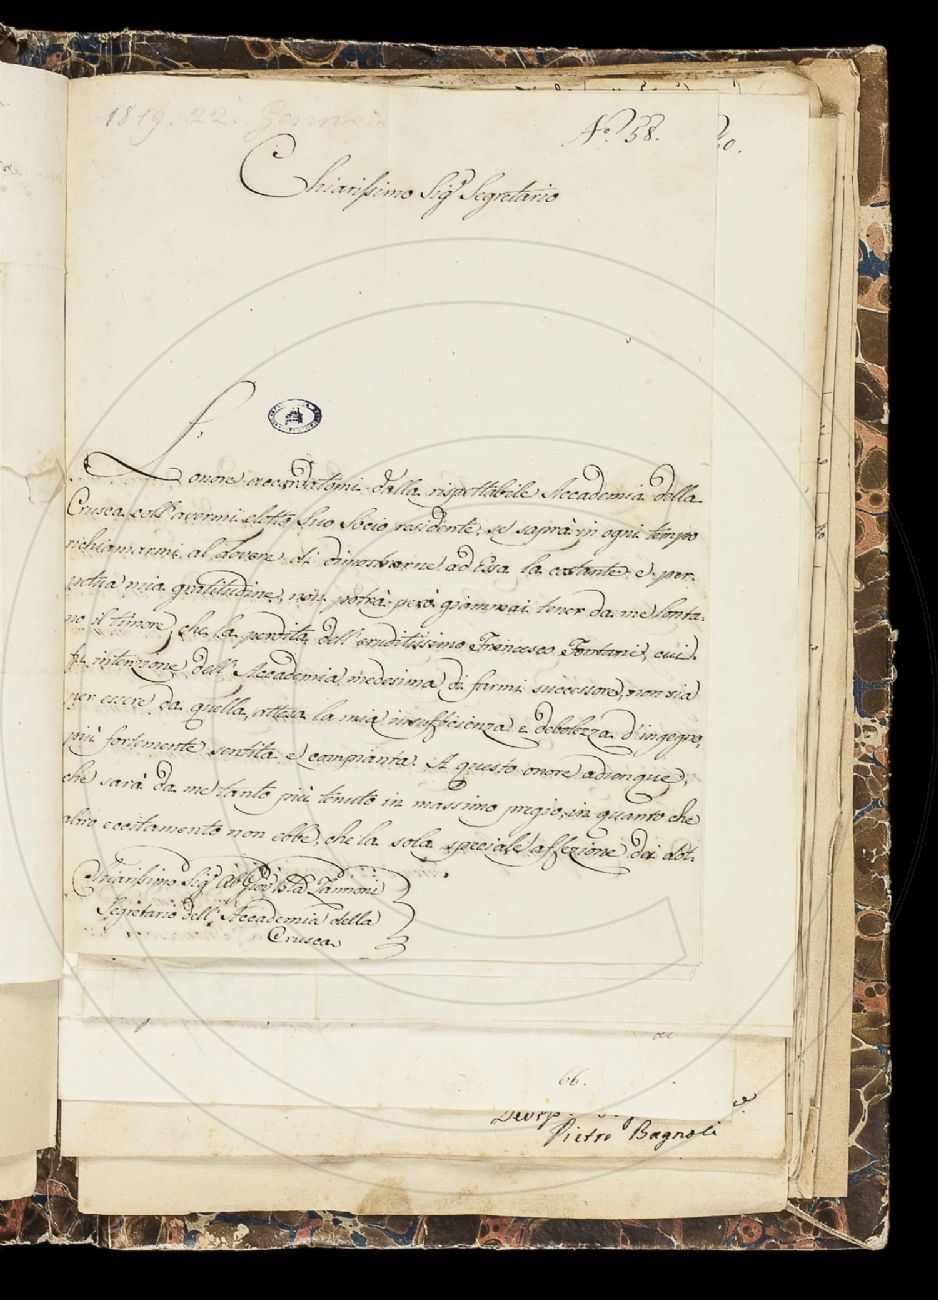 1819. 22. Gennaio
N.º 58.
60.
Chiarissimo Sig.r Segretario
L'onore accordatomi dalla rispettabile Accademia della
Crusca coll'avermi eletto suo Socio residente, se saprà in ogni tempo
richiamarmi al dovere di dimostrarne ad Essa la costante, e per-
petua mia gratitudine, non potrà però giammai tener da me lonta-
no il timore, che la perdita dell'eruditissimo Francesco Fontani, cui
fu intenzione dell'Accademia medesima di farmi successore, non sia
per essere da quella, attesa la mia insufficienza e debolezza d'ingegno,
più fortemente sentita e compianta. A questo onore adionque,
che sarà da me tanto più tenuto in massimo pregio, in quanto che
altro eccitamento non ebbe, che la sola speciale affezione dei dot-
Chiarissimo Sig.r Ab.e Gio. B.a Zannoni
Segretario dell'Accademia della
Crusca
66.
Pietro Bagnoli